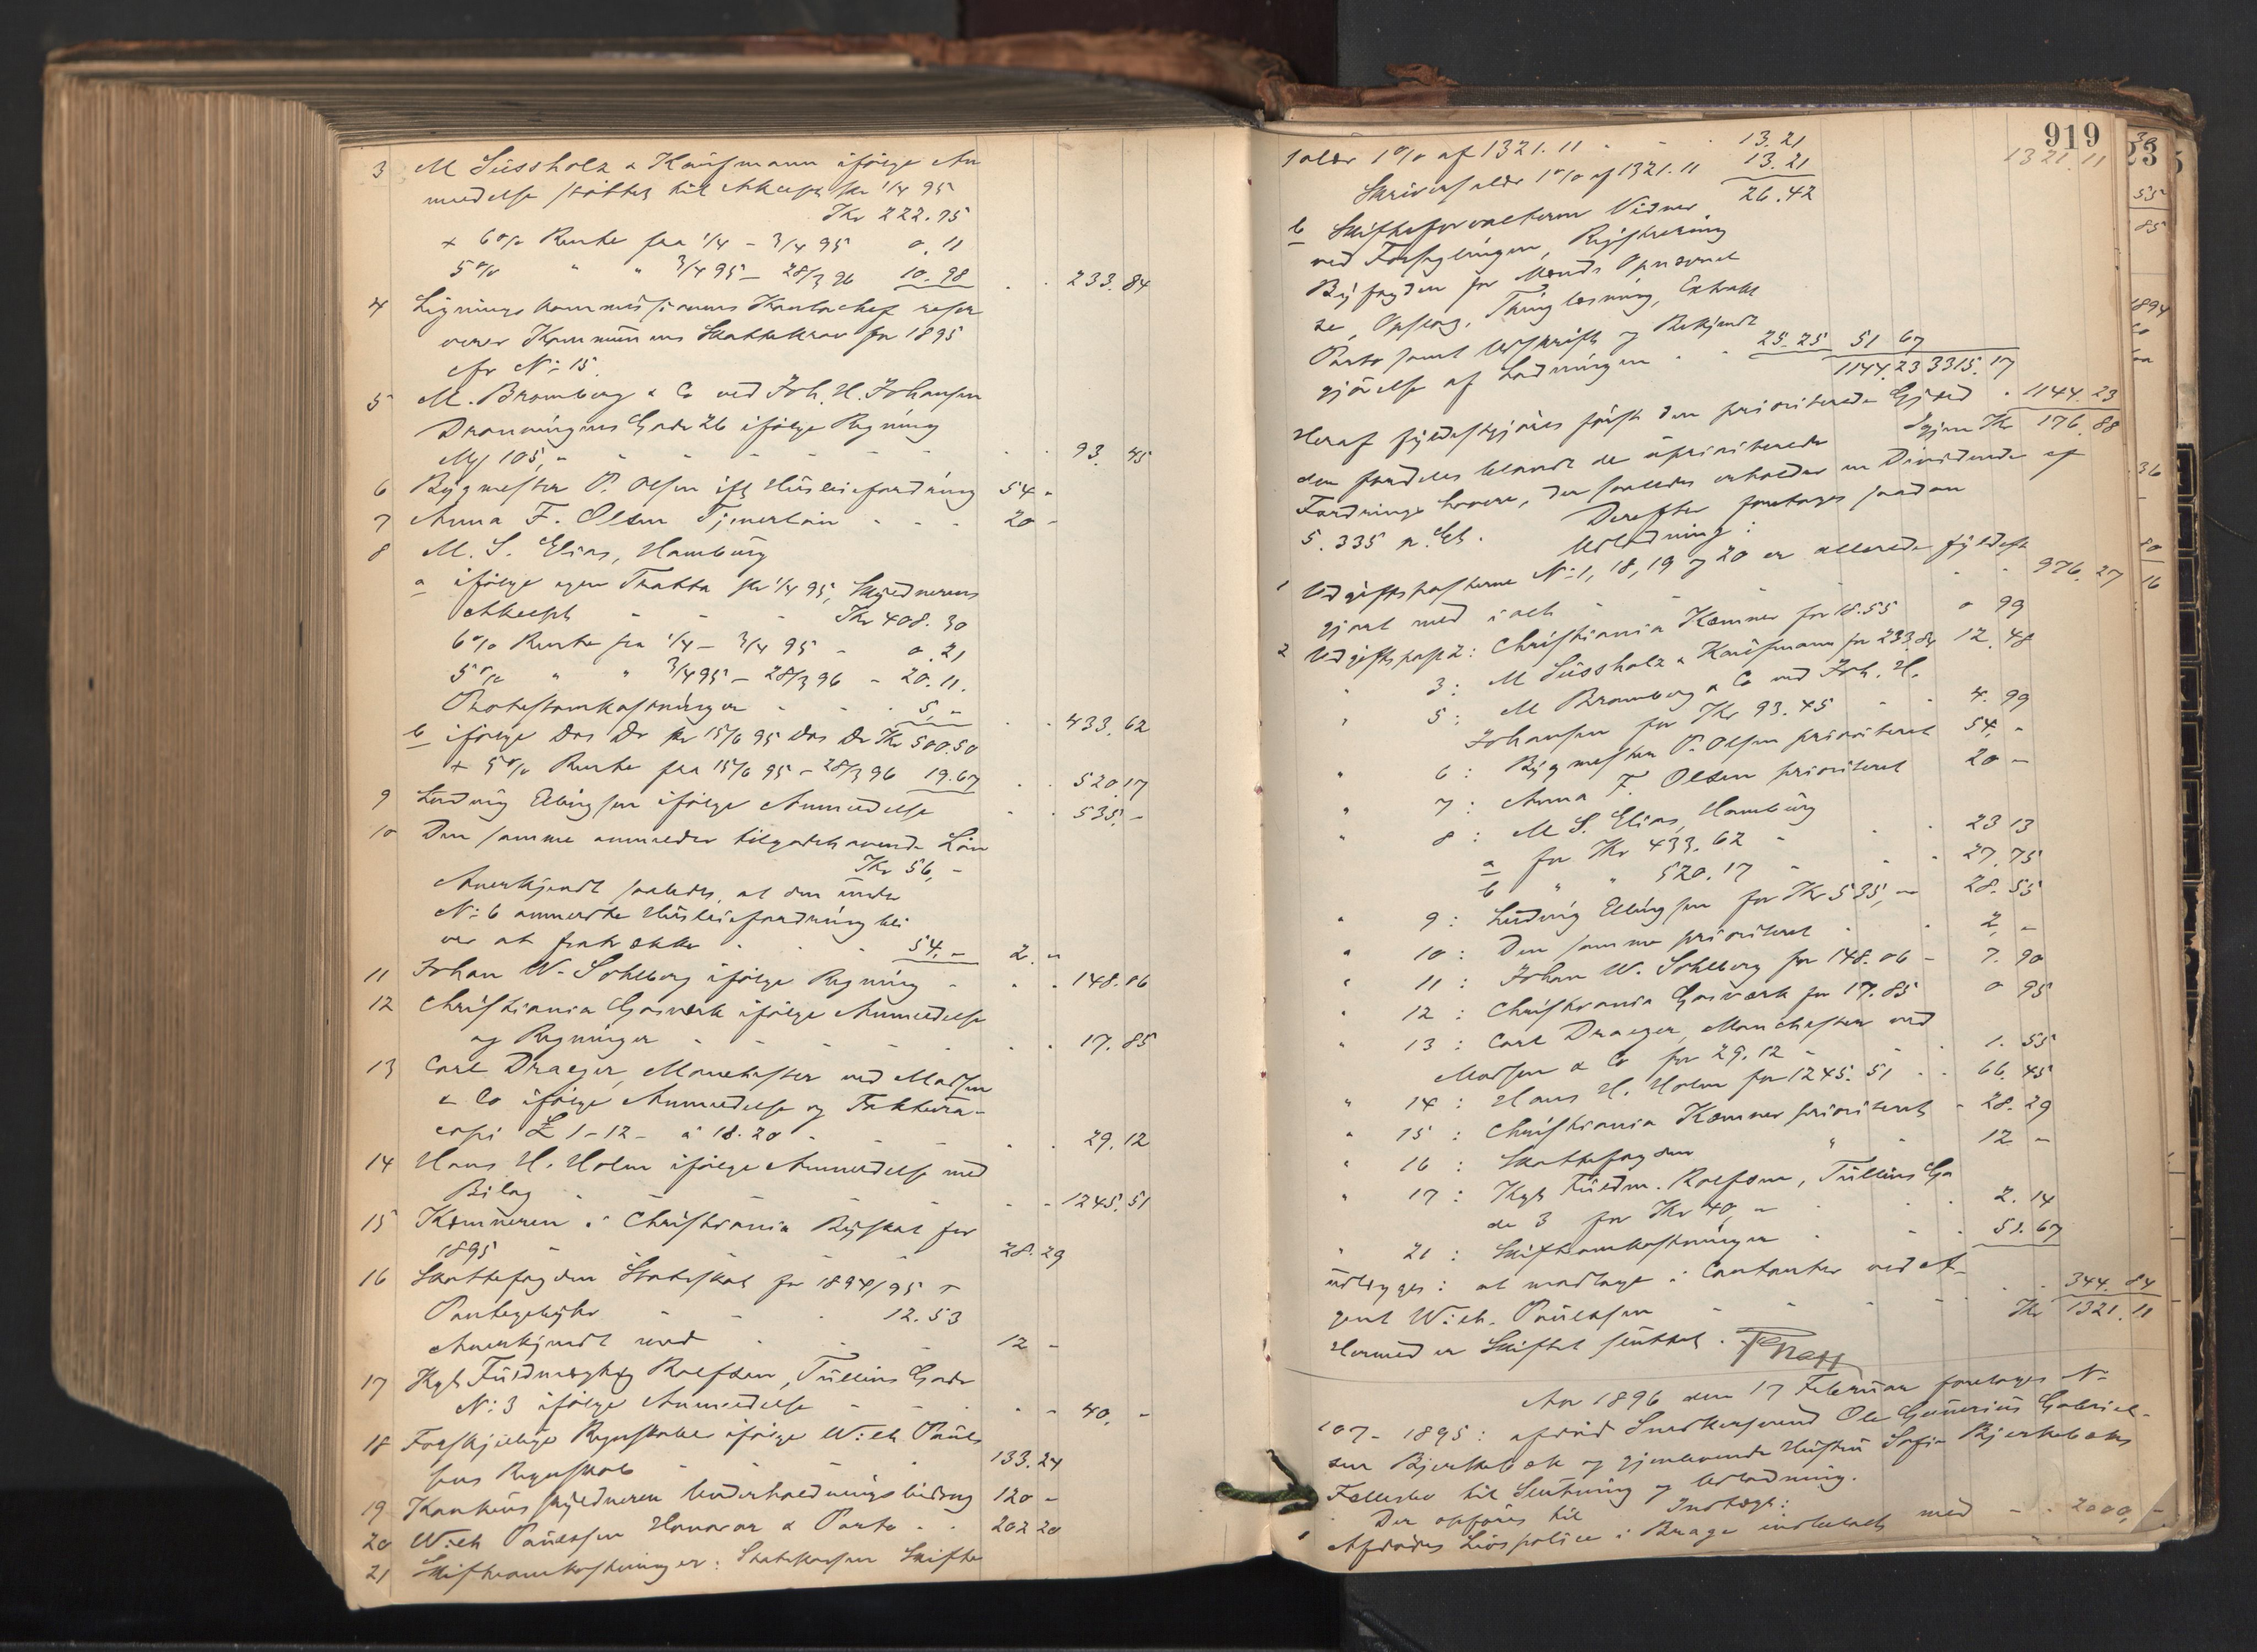 3 M Süssholz & Kaufmann ifølge An
meldelse støttet til Akcept pr 1/4 95
Kr 222.75
+ 6% Rente fra 1/4 - 3/4 95 0.11
5% " " 3/4 95 - 28/3 96 10.98 . . 233.84
4 Ligningskommissionens Kontorchef reser
verer Kommunens Skattekrav for 1895
cfr No 15.
5 M. Bromberg & Co ved Joh. H. Johansen
Dronningens Gade 26 ifølge Regning
Mk 105,- - - - - - - . . 93.45
6 Bygmester P. Olsen ifg Husleiefordring 54 -
7 Anna F. Olsen Tjenerløn - - - 20 -
8 M. S. Elias, Hamburg
a ifølge egen Tratta pr 1/4 95, Skyldnerens
Akcept - - - Kr 408.30
6% Rente fra 1/4 - 3/4 95 - 0.21
5% " " 3/4 95 - 28/3 96 - 20.11.
Protestomkostninger - - 5,- . . 433.62
b ifølge Do Do pr 15/6 95 Do Do Kr 500.50
+ 5% Rente fra 15/6 95 - 28/3 96 19.67 . . 520.17
9 Ludvig Ellingsen ifølge Anmeldelse . . 535,-
10 Den samme anmelder tilgodehavende Løn
Kr 56,-
Anerkjendt saaledes, at den under
No 6 anmeldte Husleiefordring bli
ver at fratrække - - - 54,- 2.-
11 Johan W. Sohlberg ifølge Regning - . . 148.06
12 Christiania Gasværk ifølge Anmeldelse
og Regninger - - - - - . . 17.85
13 Carl Draeger, Manchester ved Madsen
& Co ifølge Anmeldelse og Faktura-
copi £ 1-12- à 18.20 - - - . . 29.12
14 Hans H. Holm ifølge Anmeldelse med
Bilag - - - - - - - 1245.51
15 Kæmneren i Christiania Byskat for
1895 - - - - - 28.29
16 Skattefogden Statsskat for 1894/95 +
Pantegebyhr - - - 12.53
Anerkjendt med - - - 12 -
17 Kgl Fuldmægtig Rolfsen, Tullins Gade
No 3 ifølge Anmeldelse - - . - 40,-
18 Forskjellige Regnskaber ifølge Wilh Pauls
sens Regnskab - - - 133.24
19 Kontens skyldneren Underholdningsbidrag 120 -
20 Wilh Paulsen Honorar & Porto . . 202 20
21 Skifteomkostninger: Statskassen Skifte
919
salær 1% af 1321.11 - - - 13.21 1321.11
Skriversalær 1% af 1321.11 13.21
26.42
b Skifteforvalteren Vidner
ved Forseglingen, Registrering
Byfogden for Mænds Opnævnel
se, Opslag, Thinglæsning, Extrakt
Porto samt Udskrift og Bekjendt
gjørelse af Lodningen - - 25.25 51 67
1144.23 3315.17
Heraf fyldestgjøres først den prioriterede Gjæld . 1144.23
Igjen Kr 176.88
der fordeles blandt de uprioriterede
Fordringshavere, der saaledes erholder en Dividende af
5.335 pr. Ct. Derefter foretages saadan
Udlodning:
1 Udgiftsposterne No 1, 18, 19 og 20 er allerede fyldest
gjort med i alt - - - - - 976.27
2 Udgiftspost 2: Christiania Kæmner for 18.55 0 99
" 3: M Süssholz & Kaufmann for 233.84 12.48
" 5: M Bromberg & Co ved Joh. H.
Johansen for Kr 93.45 - - 4.99
" 6: Bygmester P. Olsen prioriteret 54,-
" 7: Anna F. Olsen prioriteret 20 -
" 8: M S. Elias, Hamburg
a for Kr 433.62 - - - 23 13
b " " 520.17 - - - 27.75
" 9: Ludvig Ellingsen for Kr 535,- 28.55
" 10: Den samme prioriteret - - 2,-
" 11: Johan W. Sohlberg for 148.06 - 7.90
" 12: Christiania Gasværk for 17.85 0 95
" 13: Carl Draeger, Manchester ved
Madsen & Co for 29.12 - - - 1.55
" 14: Hans H. Holm for 1245.51 - - 66.45
" 15: Christiania Kæmner prioriteret - 28.29
" 16: Skattefogden " - 12 -
" 17: Kgl Fuldm. Rolfsen, Tullins Ga
de 3 for Kr 40,- - - - 2.14
" 21: Skifteomkostninger - - - 51.67
udlægges: at modtage i Contanter ved A-
gent Wilh. Paulsen - - - - . . 344.84
Kr 1321.11
Hermed er Skiftet sluttet.
Aar 1896 den 17 Februar foretages No
107 - 1895: afdød Snedkersvend Ole Gunerius Gabriel-
sen Bjerkebæk og gjenlevende Hustru Sofie Bjerkebæks
Fællesbo til Slutning og Udlodning.
Der opføres til Indtægt:
1 Afdødes Livspolice i Brage indbetalt med - - . 2000,-
30
23
55
85
1894
36
80
16